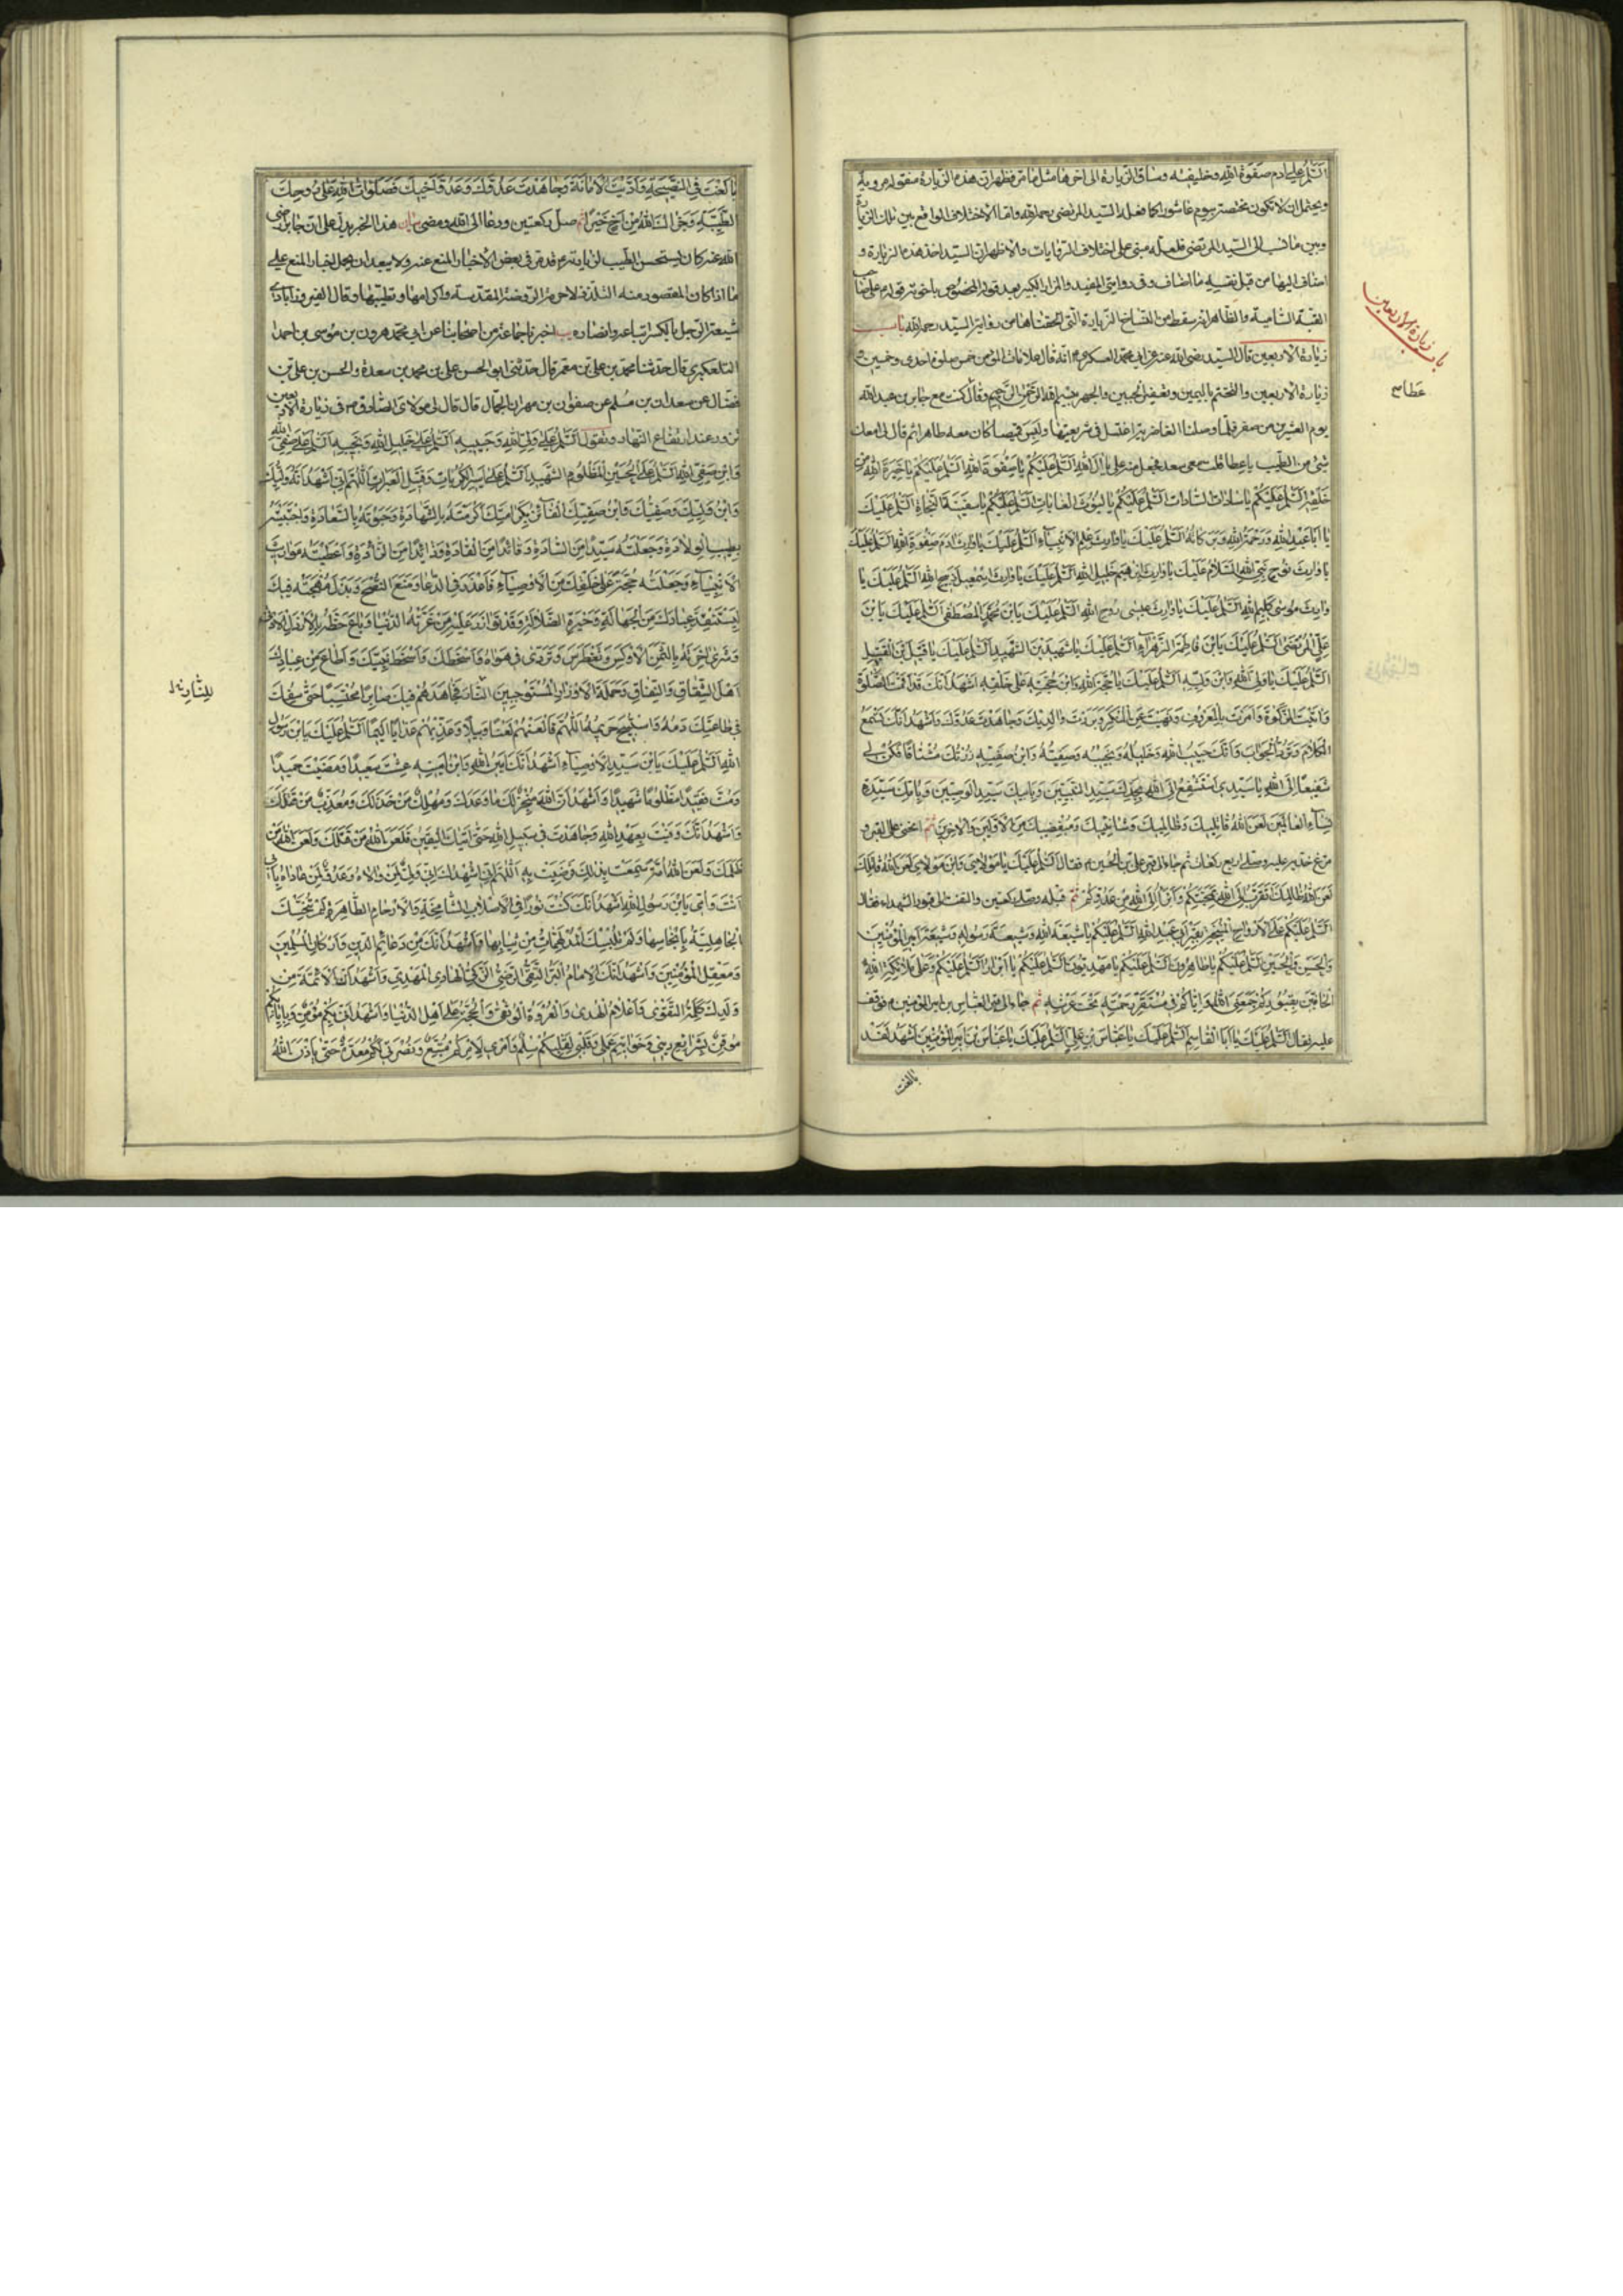 السلم على ادم صفوة الله وخليفته وساق الزيارة الى اخرها مثل ما مر فظهر ان هذه الزيارة منقولة مروية
ويحتمل ان لا تكون مختصة بيوم عاشورا كما فعله السيد المرتضى رحمه الله واما الاختلاف الواقع بين تلك الزيارة
وبين ما نسب الى السيد المرتضى فلعله مبنى على اختلاف الروايات والاظهر ان السيد اخذ هذه الزيارة و
اضاف اليها من قبل نفسه ما اضاف وفى روايتى المفيد والمزار الكبير بعد قوله المخصوص باخوته قوله السلم على صاحب
القبة السامية والظاهر انه سقط من النساخ الزيارة التى الحقناها من رواية السيد رحمه الله باب
زيارة الاربعين قال السيد رضى الله عنه عن ابى محمد العسكرى ع انه قال علامات المؤمن خمس صلوة احدى وخمسين و
زيارة الاربعين والتختم باليمين وتعفير الجبين والجهر ببسم الله الرحمن الرحيم وقال كنت مع جابر بن عبد الله
يوم العشرين من صفر فلما وصلنا الغاضرية اغتسل فى شريعتها ولبس قميصا كان معه طاهرا ثم قال لى امعك
شئ من الطيب يا عطا قلت معى سعد فجعل منه على
السلم عليكم يا ال الله السلم عليكم يا صفوة الله السلم عليكم يا خيرة الله من
خلقه السلم عليكم يا سادات السادات السلم عليكم يا ليوث الغابات السلم عليكم يا سفينة النجاة السلم عليك
يا ابا عبد الله ورحمة الله وبركاته السلم عليك يا وارث علم الانبياء السلم عليك يا وارث ادم صفوة الله السلم عليك
يا وارث نوح نبى الله السلام عليك يا وارث ابرهيم خليل الله السلم عليك يا وارث اسمعيل ذبيح الله السلم عليك يا
وارث موسى كليم الله السلم عليك يا وارث عيسى روح الله السلم عليك يا بن محمد المصطفى السلم عليك يا بن
على المرتضى السلم عليك يا بن فاطمة الزهراء السلم عليك يا شهيد بن الشهيد السلم عليك يا قتيل بن القتيل
السلم عليك يا ولى الله وابن وليه السلم عليك يا حجة الله وابن حجته على خلقه اشهد انك قد اقمت الصلوة
واتيت الزكوة وامرت بالمعروف ونهيت عن المنكر وبررت والديك وجاهدت عدوك واشهد انك تسمع
الكلام وترد الجواب وانك حبيب الله وخليله ونجيبه وصفيه وابن صفيه زرتك مشتاقا فكن لى
شفيعا الى الله يا سيدى استشفع الى الله بجدك سيد النبيين وبابيك سيد الوصيين وبامك سيدة
نساء العالمين لعن الله قاتليك وظالميك وشانئيك ومبغضيك من الاولين والاخرين ثم انحنى على القبر و
مرغ خديه عليه وصلى اربع ركعات ثم جاء الى قبر على بن الحسين ع فقال السلم عليك يا مولاى وابن مولاى لعن الله قاتلك
لعن الله ظالمك اتقرب الى الله بمحبتكم وابرا الى الله من عدوكم ثم قبله وصلى ركعتين والتفت الى قبور الشهداء فقال
السلم عليكم على الارواح المنيخة بقبر ابى عبد الله السلم عليكم يا شيعة الله وشيعة رسوله وشيعة امير المؤمنين
والحسن والحسين السلم عليكم يا طاهرون السلم عليكم يا مهديون السلم عليكم يا ابرار السلم عليكم وعلى ملائكة الله
الحافين بقبوركم جمعنى الله واياكم فى مستقر رحمته تحت عرشه ثم جاء الى قبر العباس بن امير المؤمنين ع فوقف
عليه وقال السلم عليك يا ابا القاسم السلم عليك يا عباس بن على السلم عليك يا عباس بن امير المؤمنين اشهد لقد
بالغت
باب زيارة الاربعين
عطا
بالغت فى النصيحة واديت الامانة وجاهدت عدوك وعدو اخيك فصلوات الله على روحك
الطيبة وجزاك الله من اخ خيرا ثم صلى ركعتين ودعا الى الله ومضى بيان هذا الخبر يدل على ان جابر رضى
الله عنه كان يستحسن الطيب لزيارته ع وقد مر فى بعض الاخبار المنع عنه ولا يبعد ان يحمل اخبار المنع على
ما اذا كان المقصود منه التلذذ لا حرمة الروضة المقدسة واكرامها وتطييبها وقال الفيروزابادى
شيعة الرجل بالكسر اتباعه وانصاره يب اخبرنا جماعة من اصحابنا عن ابى محمد هرون بن موسى بن احمد
التلعكبرى قال حدثنا محمد بن على بن معمر قال حدثنى ابو الحسن على بن محمد بن مسعدة والحسن بن على بن
فضال عن سعدان بن مسلم عن صفوان بن مهران الجمال قال قال لى مولاى الصادق ص فى زيارة الاربعين
تزور عند ارتفاع النهار وتقول السلم على ولى الله وحبيبه السلم على خليل الله ونجيبه السلم على صفى الله
وابن صفيه السلم على الحسين المظلوم الشهيد السلم على اسير الكربات وقتيل العبرات اللهم انى اشهد انه وليك
وابن وليك وصفيك وابن صفيك الفائز بكرامتك اكرمته بالشهادة وحبوته بالسعادة واجتبيته
بطيب الولادة وجعلته سيدا من السادة وقائدا من القادة وذائدا من الذادة واعطيته مواريث
الانبياء وجعلته حجة على خلقك من الاوصياء فاعذر فى الدعاء ومنح النصح وبذل مهجته فيك
ليستنقذ عبادك من الجهالة وحيرة الضلالة وقد توازر عليه من غرته الدنيا وباع حظه بالارذل الادنى
وشرى اخرته بالثمن الاوكس وتغطرس وتردى فى هواه واسخطك واسخط نبيك واطاع من عبادك
اهل الشقاق والنفاق وحملة الاوزار المستوجبين النار فجاهدهم فيك صابرا محتسبا حتى سفك
فى طاعتك دمه واستبيح حريمه اللهم فالعنهم لعنا وبيلا وعذبهم عذابا اليما السلم عليك يا بن رسول
الله السلم عليك يا بن سيد الاوصياء اشهد انك امين الله وابن امينه عشت سعيدا ومضيت حميدا
ومت فقيدا مظلوما شهيدا واشهد ان الله منجز لك ما وعدك ومهلك من خذلك ومعذب من قتلك
واشهد انك وفيت بعهد الله وجاهدت فى سبيل الله حتى اتيك اليقين فلعن الله من قتلك ولعن الله من
ظلمك ولعن الله امة سمعت بذلك فرضيت به اللهم انى اشهدك انى ولى لمن والاه وعدو لمن عاداه بابى
انت وامى يا بن رسول الله اشهد انك كنت نورا فى الاصلاب الشامخة والارحام الطاهرة لم تنجسك
الجاهلية بانجاسها ولم تلبسك المدلهمات من ثيابها واشهد انك من دعائم الدين واركان المسلمين
ومعقل المؤمنين واشهد انك الامام البر التقى الرضى الزكى الهادى المهدى واشهد ان الائمة من
ولدك كلمة التقوى واعلام الهدى والعروة الوثقى والحجة على اهل الدنيا واشهد انى بكم مؤمن وبايابكم
موقن بشرايع دينى وخواتيم عملى وقلبى لقلبكم سلم وامرى لامركم متبع ونصرتى لكم معدة حتى ياذن الله